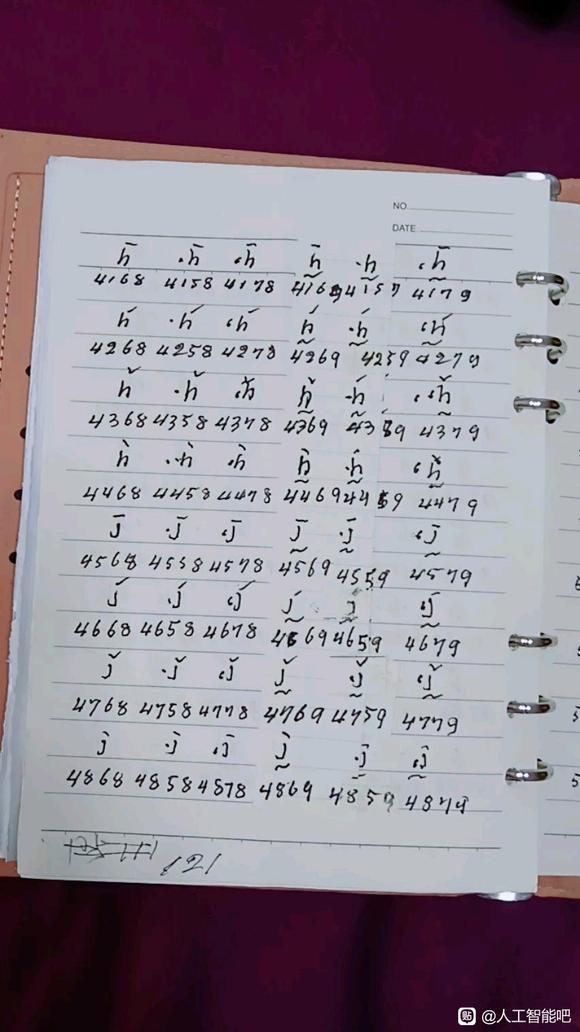 NO.
DATE
h̄ ·h̄ ‹h̄ h̰̄ ·h̰̄ ‹h̰̄
4168 4158 4178 4169 4159 4179
h́ ·h́ ‹h́ h̰́ ·h̰́ ‹h̰́
4268 4258 4278 4269 4259 4279
ȟ ·ȟ ‹ȟ ȟ̰ ·ȟ̰ ‹ȟ̰
4368 4358 4378 4369 4359 4379
h̀ ·h̀ ‹h̀ h̰̀ ·h̰̀ ‹h̰̀
4468 4458 4478 4469 4459 4479
j̄ ·j̄ ‹j̄ j̰̄ ·j̰̄ ‹j̰̄
4568 4558 4578 4569 4559 4579
j́ ·j́ ‹j́ j̰́ ·j̰́ ‹j̰́
4668 4658 4678 4669 4659 4679
ǰ ·ǰ ‹ǰ ǰ̰ ·ǰ̰ ‹ǰ̰
4768 4758 4778 4769 4759 4779
j̀ ·j̀ ‹j̀ j̰̀ ·j̰̀ ‹j̰̀
4868 4858 4878 4869 4859 4879
121
贴 @人工智能吧